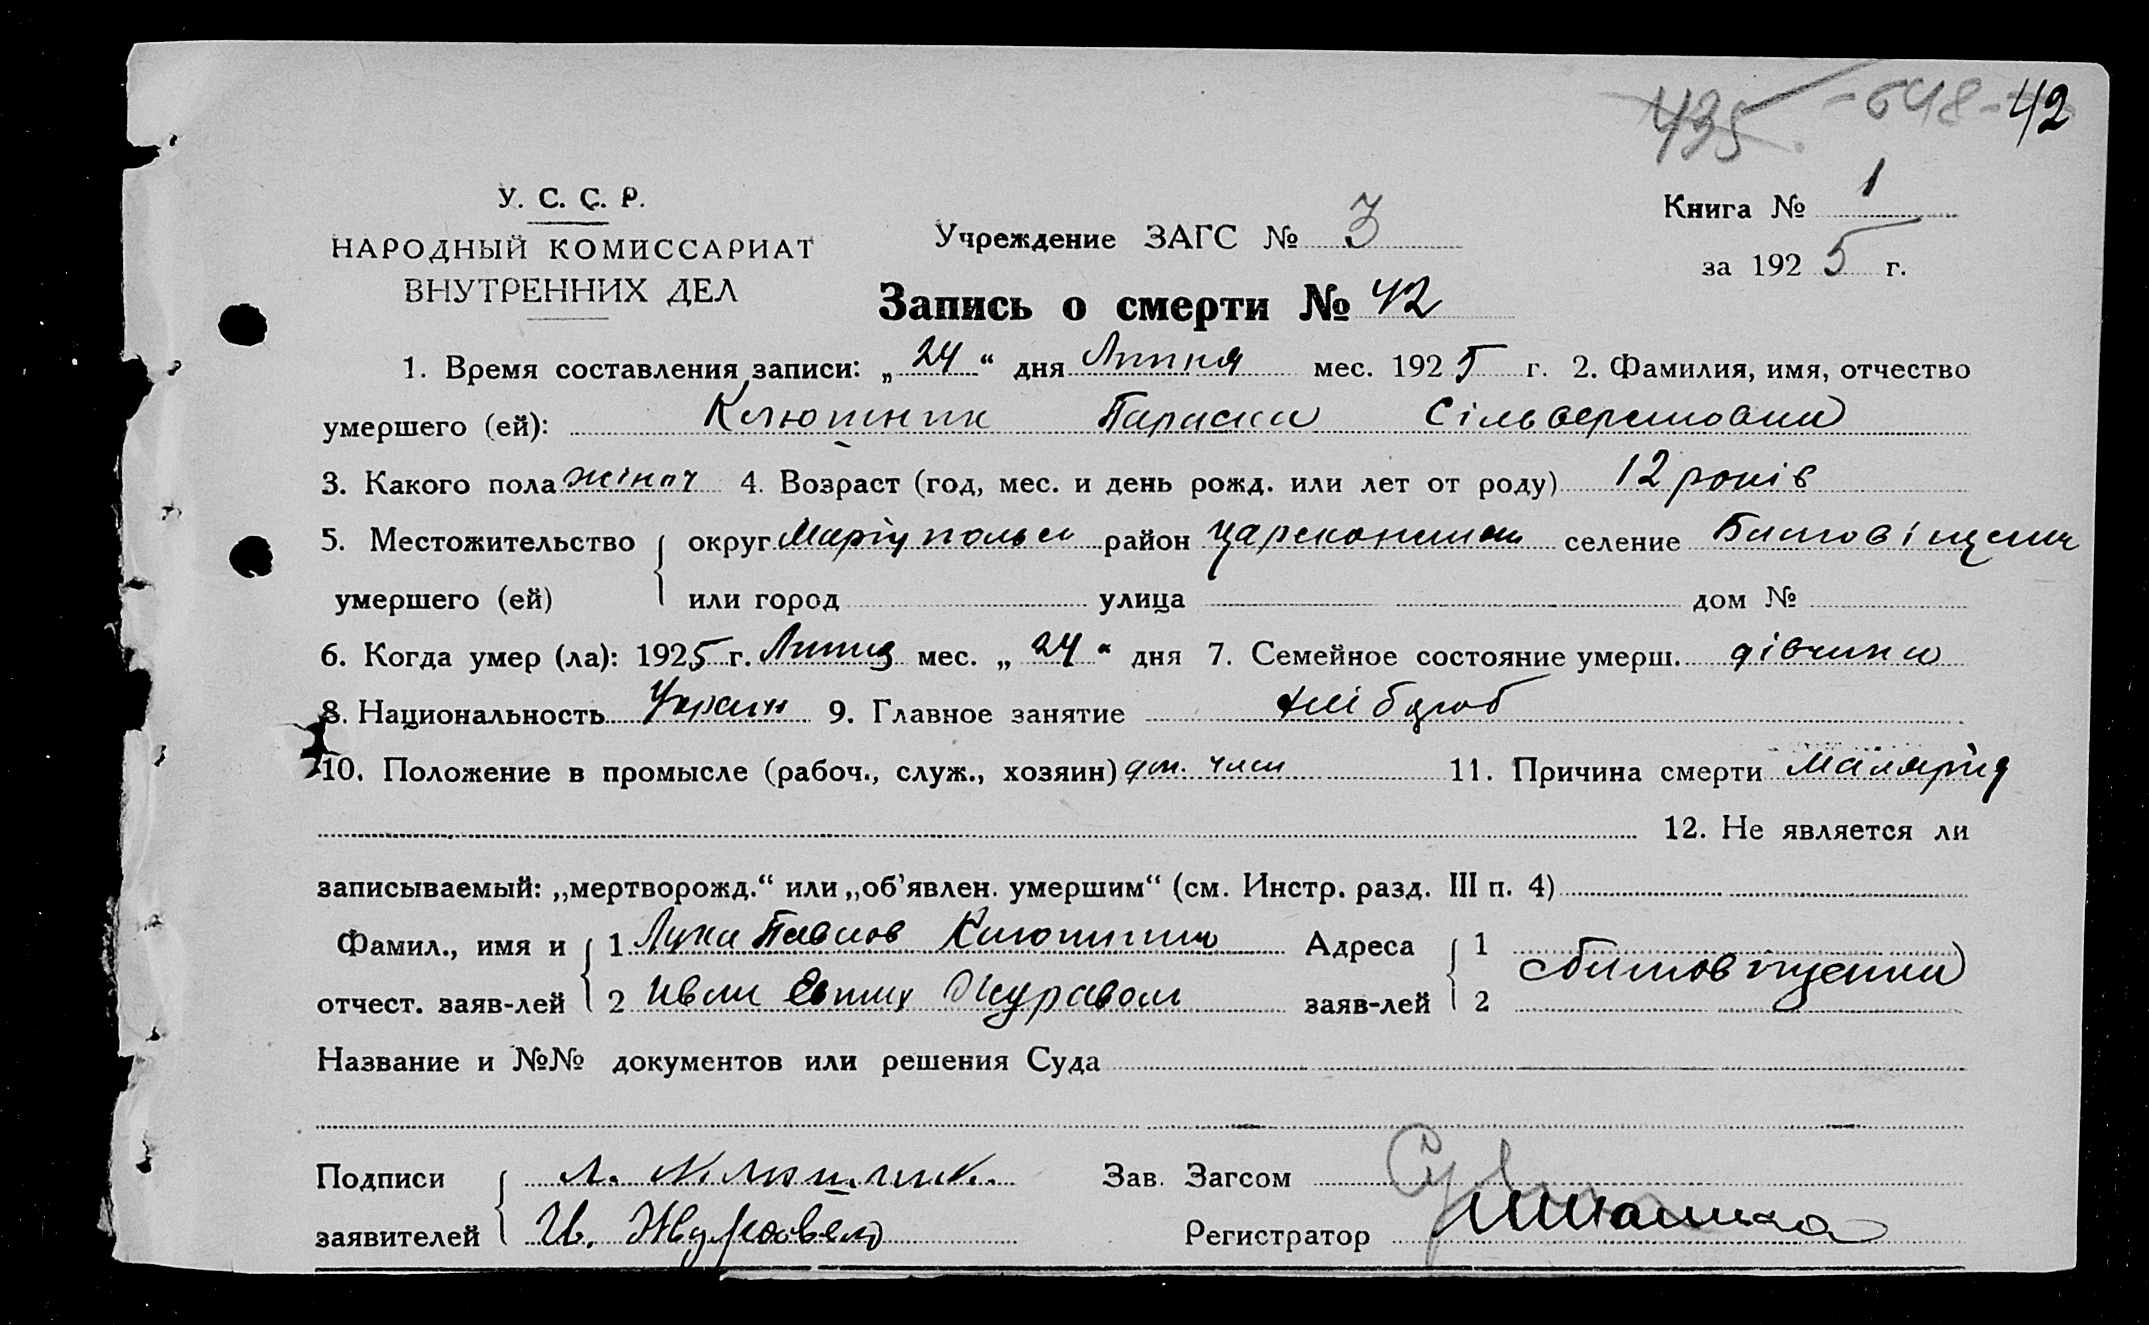 435 -648- 42
У. С. С. Р.
НАРОДНЫЙ КОМИССАРИАТ
ВНУТРЕННИХ ДЕЛ
Учреждение ЗАГС № 3
Книга № 1
за 192 5 г.
Запись о смерти № 42
1. Время составления записи: „ 24 “ дня Липня мес. 192 5 г. 2. Фамилия, имя, отчество
умершего (ей): Клюшник Параска Сільверстовна
3. Какого пола жіноч 4. Возраст (год, мес. и день рожд. или лет от роду) 12 років
5. Местожительство { округ Маріупольск район Цареконст селение Благовіщенк
умершего (ей) или город улица дом №
6. Когда умер (ла): 1925 г. Липня мес. „ 24 “ дня 7. Семейное состояние умерш. дівчина
8. Национальность Украин 9. Главное занятие хлібороб
10. Положение в промысле (рабоч., служ., хозяин) член 11. Причина смерти Малярія
12. Не является ли
записываемый: „мертворожд.“ или „об’явлен. умершим“ (см. Инстр. разд. III п. 4)
Фамил., имя и { 1 Лука Павлов Клюшник Адреса { 1
отчест. заяв-лей 2 Иван Журавель заяв-лей 2
Название и №№ документов или решения Суда
Подписи { Л. Клюшник. Зав. Загсом
заявителей И. Журавель Регистратор